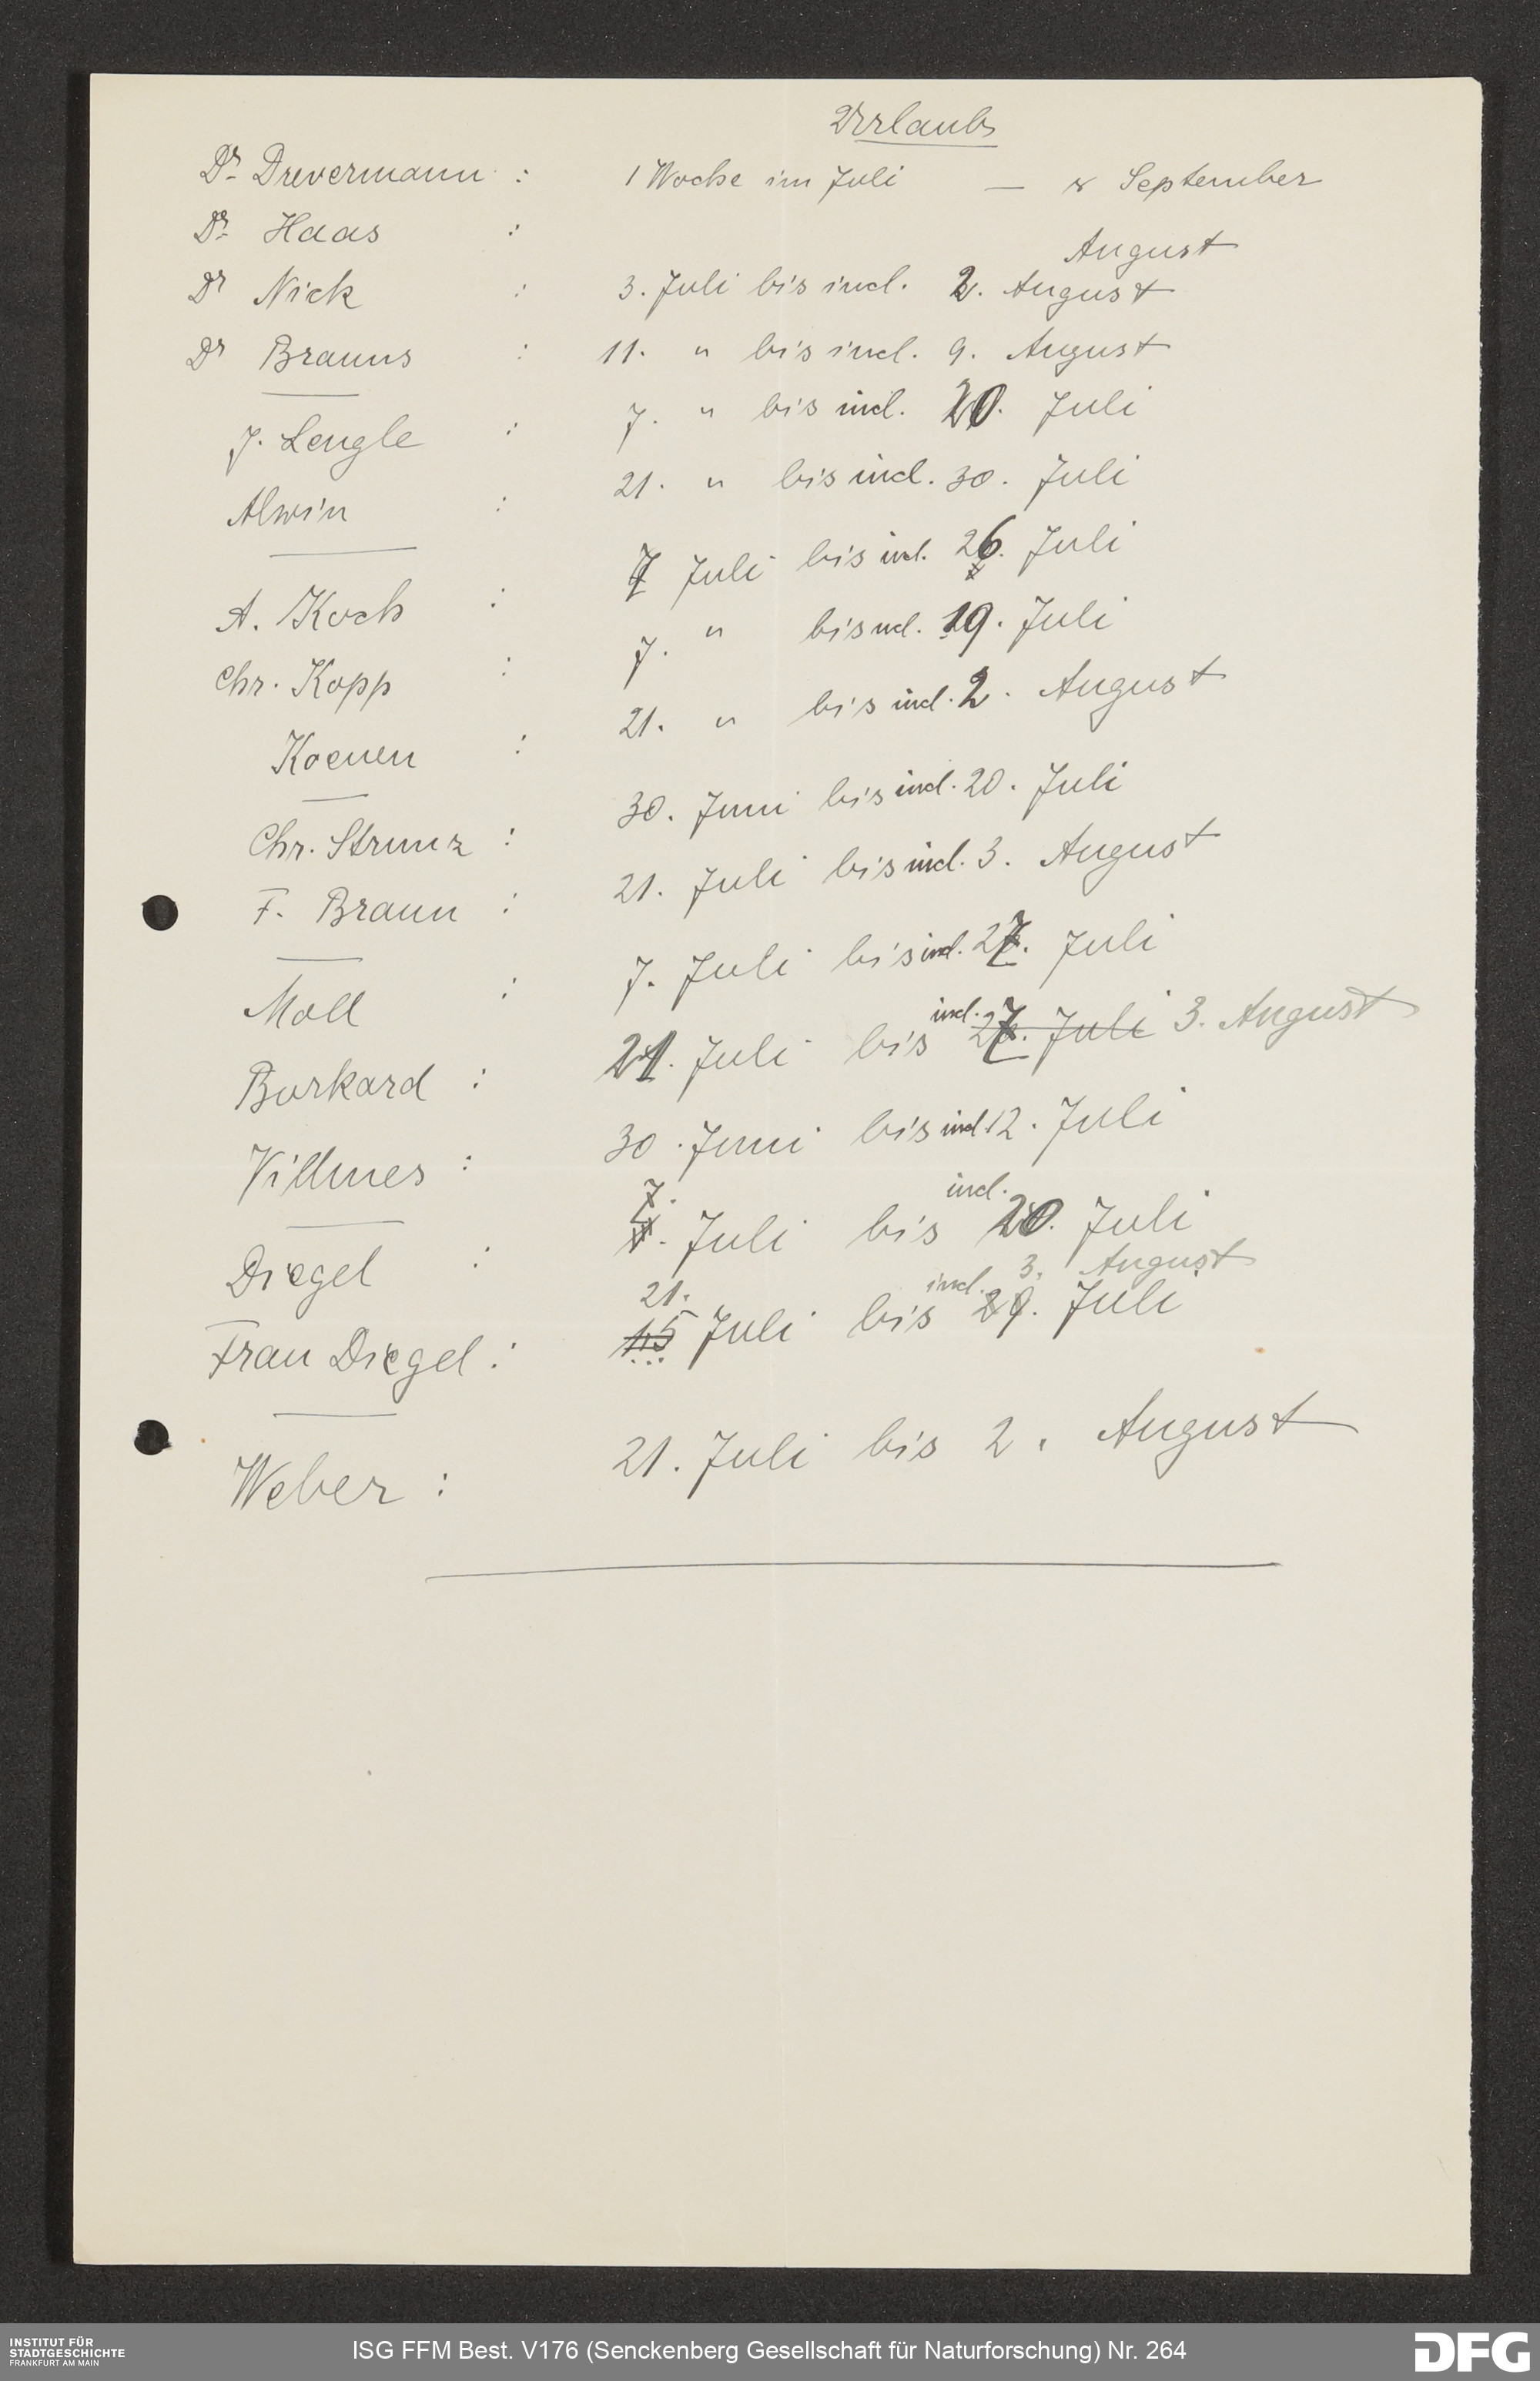 Urlaub
Dr. Drevermann : 1 Woche im Juli — & September
Dr. Haas : August
Dr Nick : 3. Juli bis incl. 2. August
Dr Brauns : 11. " bis incl. 9. August
J. Lengle : 7. " bis incl. 20. Juli
Alwin : 21. " bis incl. 30. Juli
A. Koch : 7 Juli bis incl. 26. Juli
Chr. Kopp : 7. " bis incl. 19. Juli
Koenen : 21. " bis incl. 2. August
Chr. Strunz : 30. Juni bis incl. 20. Juli
F. Braun : 21. Juli bis incl. 3. August
Moll : 7. Juli bis incl. 27. Juli
Burkard : 21. Juli bis incl. 27. Juli 3. August
Villmes : 30. Juni bis incl. 12. Juli
7.
Diegel : Juli bis incl. 20. Juli
21. 3. August
Frau Diegel : 15 Juli bis incl. 29. Juli
Weber : 21. Juli bis 2. August
INSTITUT FÜR
STADTGESCHICHTE
FRANKFURT AM MAIN
ISG FFM Best. V176 (Senckenberg Gesellschaft für Naturforschung) Nr. 264
DFG